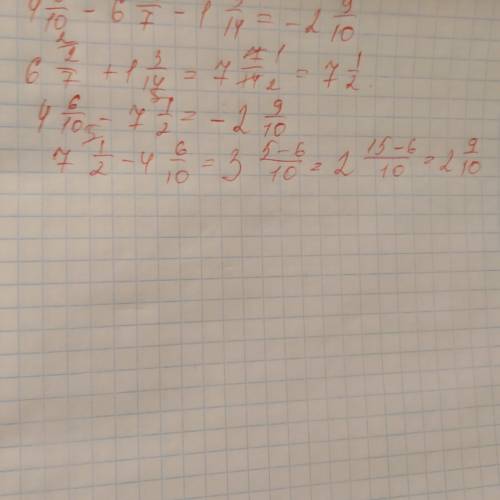 4 6/10 - 6 2/7 - 1 3/14 = -2 9/10
6 2/7 + 1 3/14 = 7 7/14 = 7 1/2.
4 6/10 - 7 1/2 = -2 9/10
7 1/2 - 4 6/10 = 3 (5-6)/10 = 2 (15-6)/10 = 2 9/10